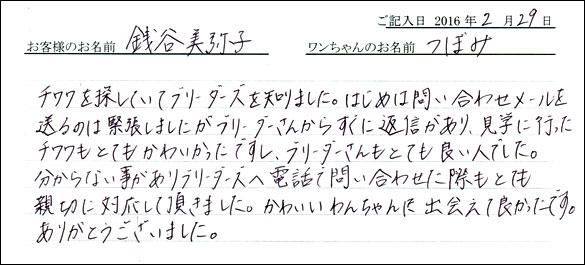 ご記入日 2016 年 2 月 29 日
お客様のお名前 銭谷 美弥子 ワンちゃんのお名前 つぼみ
チワワを探していてブリーダーズを知りました。はじめは問い合わせメールを
送るのは緊張しましたがブリーダーさんからすぐに返信があり、見学に行った
チワワもとてもかわいかったですし、ブリーダーさんもとても良い人でした。
分からない事がありブリーダーズへ電話で問い合わせた際もとても
親切に対応して頂きました。かわいいわんちゃんに出会えて良かったです。
ありがとうございました。